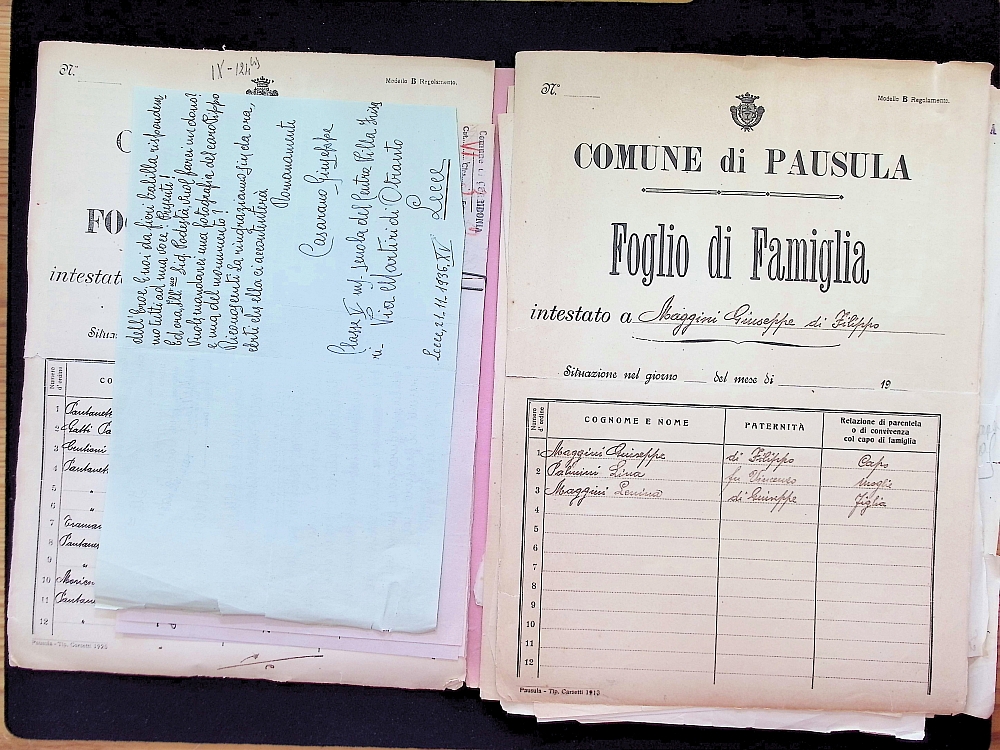 N.º
IV-124
Modello B Regolamento.
FO
intestat
Situa
Numero d'ordine
CO
1 Pantanet
2 Gatti Pa
3
4 Pantanet
5 "
6 "
7
8 Pantane
9 "
10
11 Pantan
12
Pausula - Tip. Carzetti 1920
dell'Eroe, e noi da fieri balilla risponde
mo tutti ad una voce! Presenti!
Ed ora, Ill.mo Sig. Podestà, vuol farci un dono?
Vuol mandarci una fotografia del caro Pippo
e una del monumento?
Riconoscenti La ringraziamo fin da ora,
certi che ella ci accontenterà
Romanamente
Casarano Giuseppe
Classe V m/ scuola del Centro Villa
Via Martiri di Otranto
Lecce
Lecce, 21.11.1936, XV
N.º
Modello B Regolamento.
COMUNE di PAUSULA
Foglio di Famiglia
intestato a Maggini Giuseppe di Filippo
Situazione nel giorno del mese di 19
Numero d'ordine
COGNOME E NOME
PATERNITÀ
Relazione di parentela o di convivenza col capo di famiglia
1 Maggini Giuseppe di Filippo Capo
2 Palmini Lina fu Vincenzo moglie
3 Maggini Lenina di Giuseppe figlia
4
5
6
7
8
9
10
11
12
Pausula - Tip. Carzetti 1913